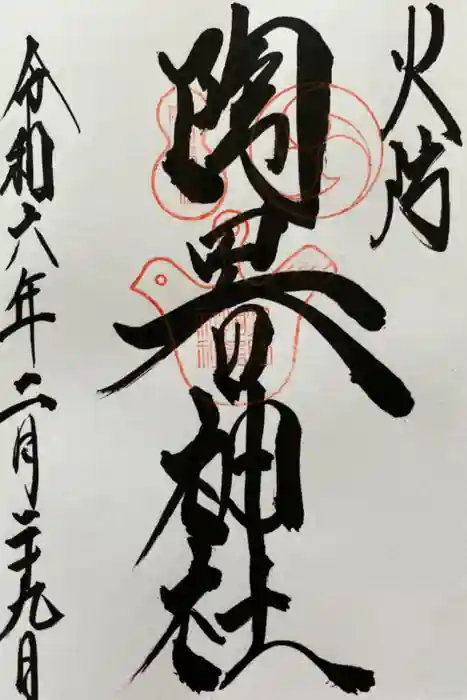 火防
陶器神社
令和六年二月二十九日